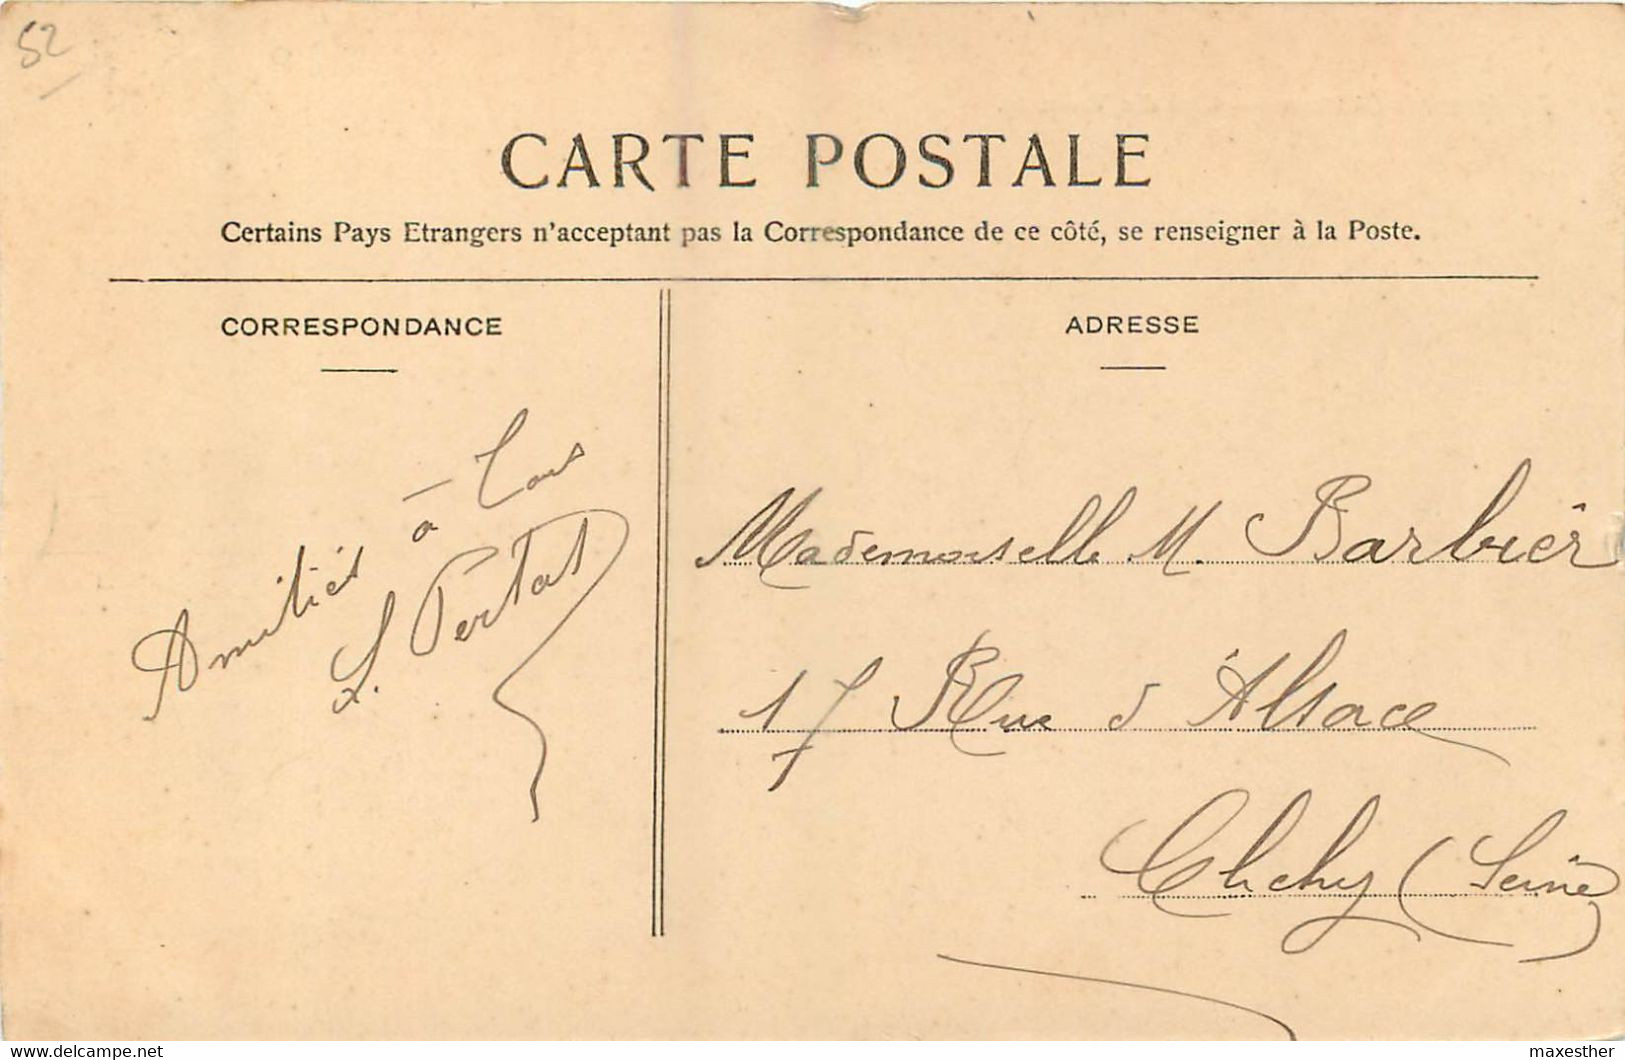 52
CARTE POSTALE
Certains Pays Etrangers n'acceptant pas la Correspondance de ce côté, se renseigner à la Poste.
CORRESPONDANCE
Amitiés à Tous
L. Pertat
ADRESSE
Mademoiselle M. Barbier
17 Rue d'Alsace
Clichy (Seine)
delcampe.net
maxesther